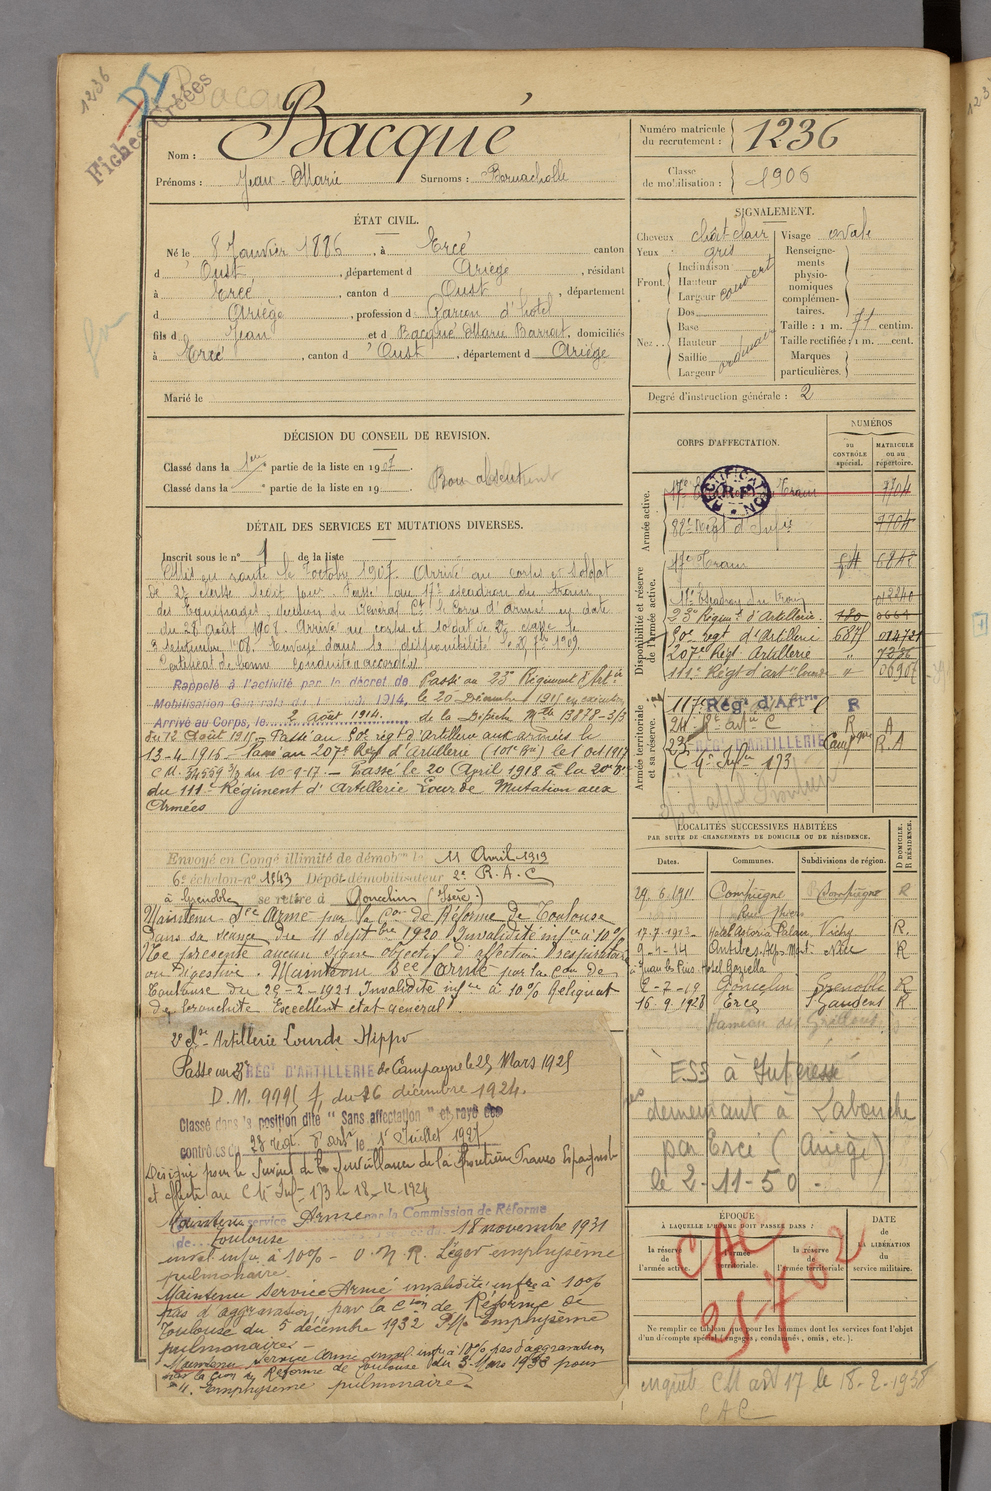 1236
DI
Fiches Créées
Bacqué
Nom : Bacqué
Prénoms : Jean-Marie Surnoms : Bernacholle
Numéro matricule du recrutement : 1236
Classe de mobilisation : 1906
ÉTAT CIVIL.
Né le 8 Janvier 1886, à Ercé canton
d'Oust, département d Ariège, résidant
à Ercé, canton d Oust, département
d Ariège, profession d Garçon d'hôtel
fils d Jean et d Bacqué Marie Barrat, domiciliés
à Ercé, canton d'Oust, département d Ariège
Marié le
SIGNALEMENT.
Cheveux chât-clair
Yeux gris
Front. Inclinaison
Hauteur
Largeur
couvert
Nez.. Dos
Base
Hauteur
Saillie
Largeur
ordinaire
Visage ovale
Renseignements physionomiques complémentaires.
Taille : 1 m. 71 centim.
Taille rectifiée : 1 m. cent.
Marques particulières.
Degré d'instruction générale : 2
DÉCISION DU CONSEIL DE REVISION.
Classé dans la 1ere partie de la liste en 1907.
Classé dans la partie de la liste en 19
Bon absent
DÉTAIL DES SERVICES ET MUTATIONS DIVERSES.
Inscrit sous le n° 1 de la liste
Mis en route le 7 octobre 1907. Arrivé au corps et soldat
de 2e classe ledit jour. Passé au 17e escadron du train
des Equipages, décision du Général Ct le Corps d'armée en date
du 28 Août 1908. Arrivé au corps et soldat de 2e classe le
3 septembre 1908. Envoyé dans la disponibilité le 25 1909.
Certificat de bonne conduite accordé.
Rappelé à l'activité par le décret de
Mobilisation Générale du 1 août 1914,
Arrivé au Corps, le 2 Août 1914.
Passé au 23e Régiment d'Artie
le 20 Décembre 1915 en exécution
de la Dépêche Mle 13878-3/3
du 12 Août 1915 - Passé au 50e régt d'Artillerie aux armées le
13-4-1916 - Passé au 207e Régt d'Artillerie (101e Bie) le 1 oct 1917
C.M. 34559 3/3 du 10-9-17. - Passé le 20 April 1918 à la 20me Bie
du 111e Régiment d'Artillerie Lourde Mutation aux
Armées
Envoyé en Congé illimité de démobon le 11 Avril 1919
6e échelon-n° 1843 Dépôt démobilisateur 2e R.A.C
à Grenoble se retire à Goncelin (Isère)
Maintenu Sce Armé par la Con de Réforme de Toulouse
dans sa séance du 11 Septbre 1920 Invalidité infre à 10%
Ne présente aucun signe objectif d'affection respiratoire
ou digestive. Maintenu Sce armé par la Con de
Toulouse du 25-2-1921 Invalidité infre à 10% Reliquat
de bronchite Excellent état général
Artillerie Lourde Hippo
Passé au 23 RÉGt D'ARTILLERIE de Campagne le 25 Mars 1925
D.M. 9995 du 26 décembre 1924.
Classé dans la position dite "Sans affectation" et rayé des
contrôles du 23 Régt d'arte le 1er Juillet 1927
Désigné pour le Service de la Surveillance de la Frontière Franco Espagnole
et affecté au C Mre Infie 173 le 18-12-1929
Maintenu service Armé par la Commission de Réforme
de Toulouse 18 novembre 1931
inval. infre à 10% - O.N.R. Léger emphysème
pulmonaire.
Maintenu service Armé invalidité infre à 10%
pas d'aggravation par la Cion de Réforme de
Toulouse du 5 décembre 1932 P/ Emphysème
pulmonaire -
Maintenu service armé inval. infre à 10% pas d'aggravation
par la Cion de Réforme de Toulouse du 3-Mars 1933 pour
Emphysème pulmonaire.
CORPS D'AFFECTATION.
NUMÉROS
au CONTRÔLE spécial.
MATRICULE ou au répertoire.
Armée active.
RECTIFICATION R.F.
17e Train 7704
88e Régt d'Infie 7704
17e Train 6848
Disponibilité et réserve de l'armée active.
17e Escadron du train 012240
23e Régimt d'Artillerie 180
50e régt d'Artillerie 6871 014721
207e Régt Artillerie " 7236
111e Régt d'artie lourde " 06907
Armée territoriale et sa réserve.
117e Rég. d'Artrie R
24 R A
23e RÉGt D'ARTILLERIE Campagne R.A
C Gn Infie 173
LOCALITÉS SUCCESSIVES HABITÉES
PAR SUITE DE CHANGEMENTS DE DOMICILE OU DE RÉSIDENCE.
Dates. Communes. Subdivisions de région. D DOMICILE. R RÉSIDENCE.
29.6.1911 Compiègne Compiègne R
Rue Thiers
17-7-1913 Hotel Astoria Palace, Vichy R.
9-4-14 Antibes, Alpes Mmes Nice R
à Juan les Pins Hotel Gaziella
2-7-19 Goncelin Grenoble R
16.9.1928 Ercé St Gaudens R
Hameau de
ESS à Intéressé
demeurant à Labouche
par Ercé (Ariège)
le 2-11-50.
ÉPOQUE
À LAQUELLE L'HOMME DOIT PASSER DANS :
la réserve de l'armée active.
l'armée territoriale.
la réserve de l'armée territoriale.
DATE de LA LIBÉRATION du service militaire.
CAC
25702
Ne remplir ce tableau que pour les hommes dont les services font l'objet d'un décompte spécial (engagés, condamnés, omis, etc.).
enquête CM art 17 le 18-2-1938
CAC